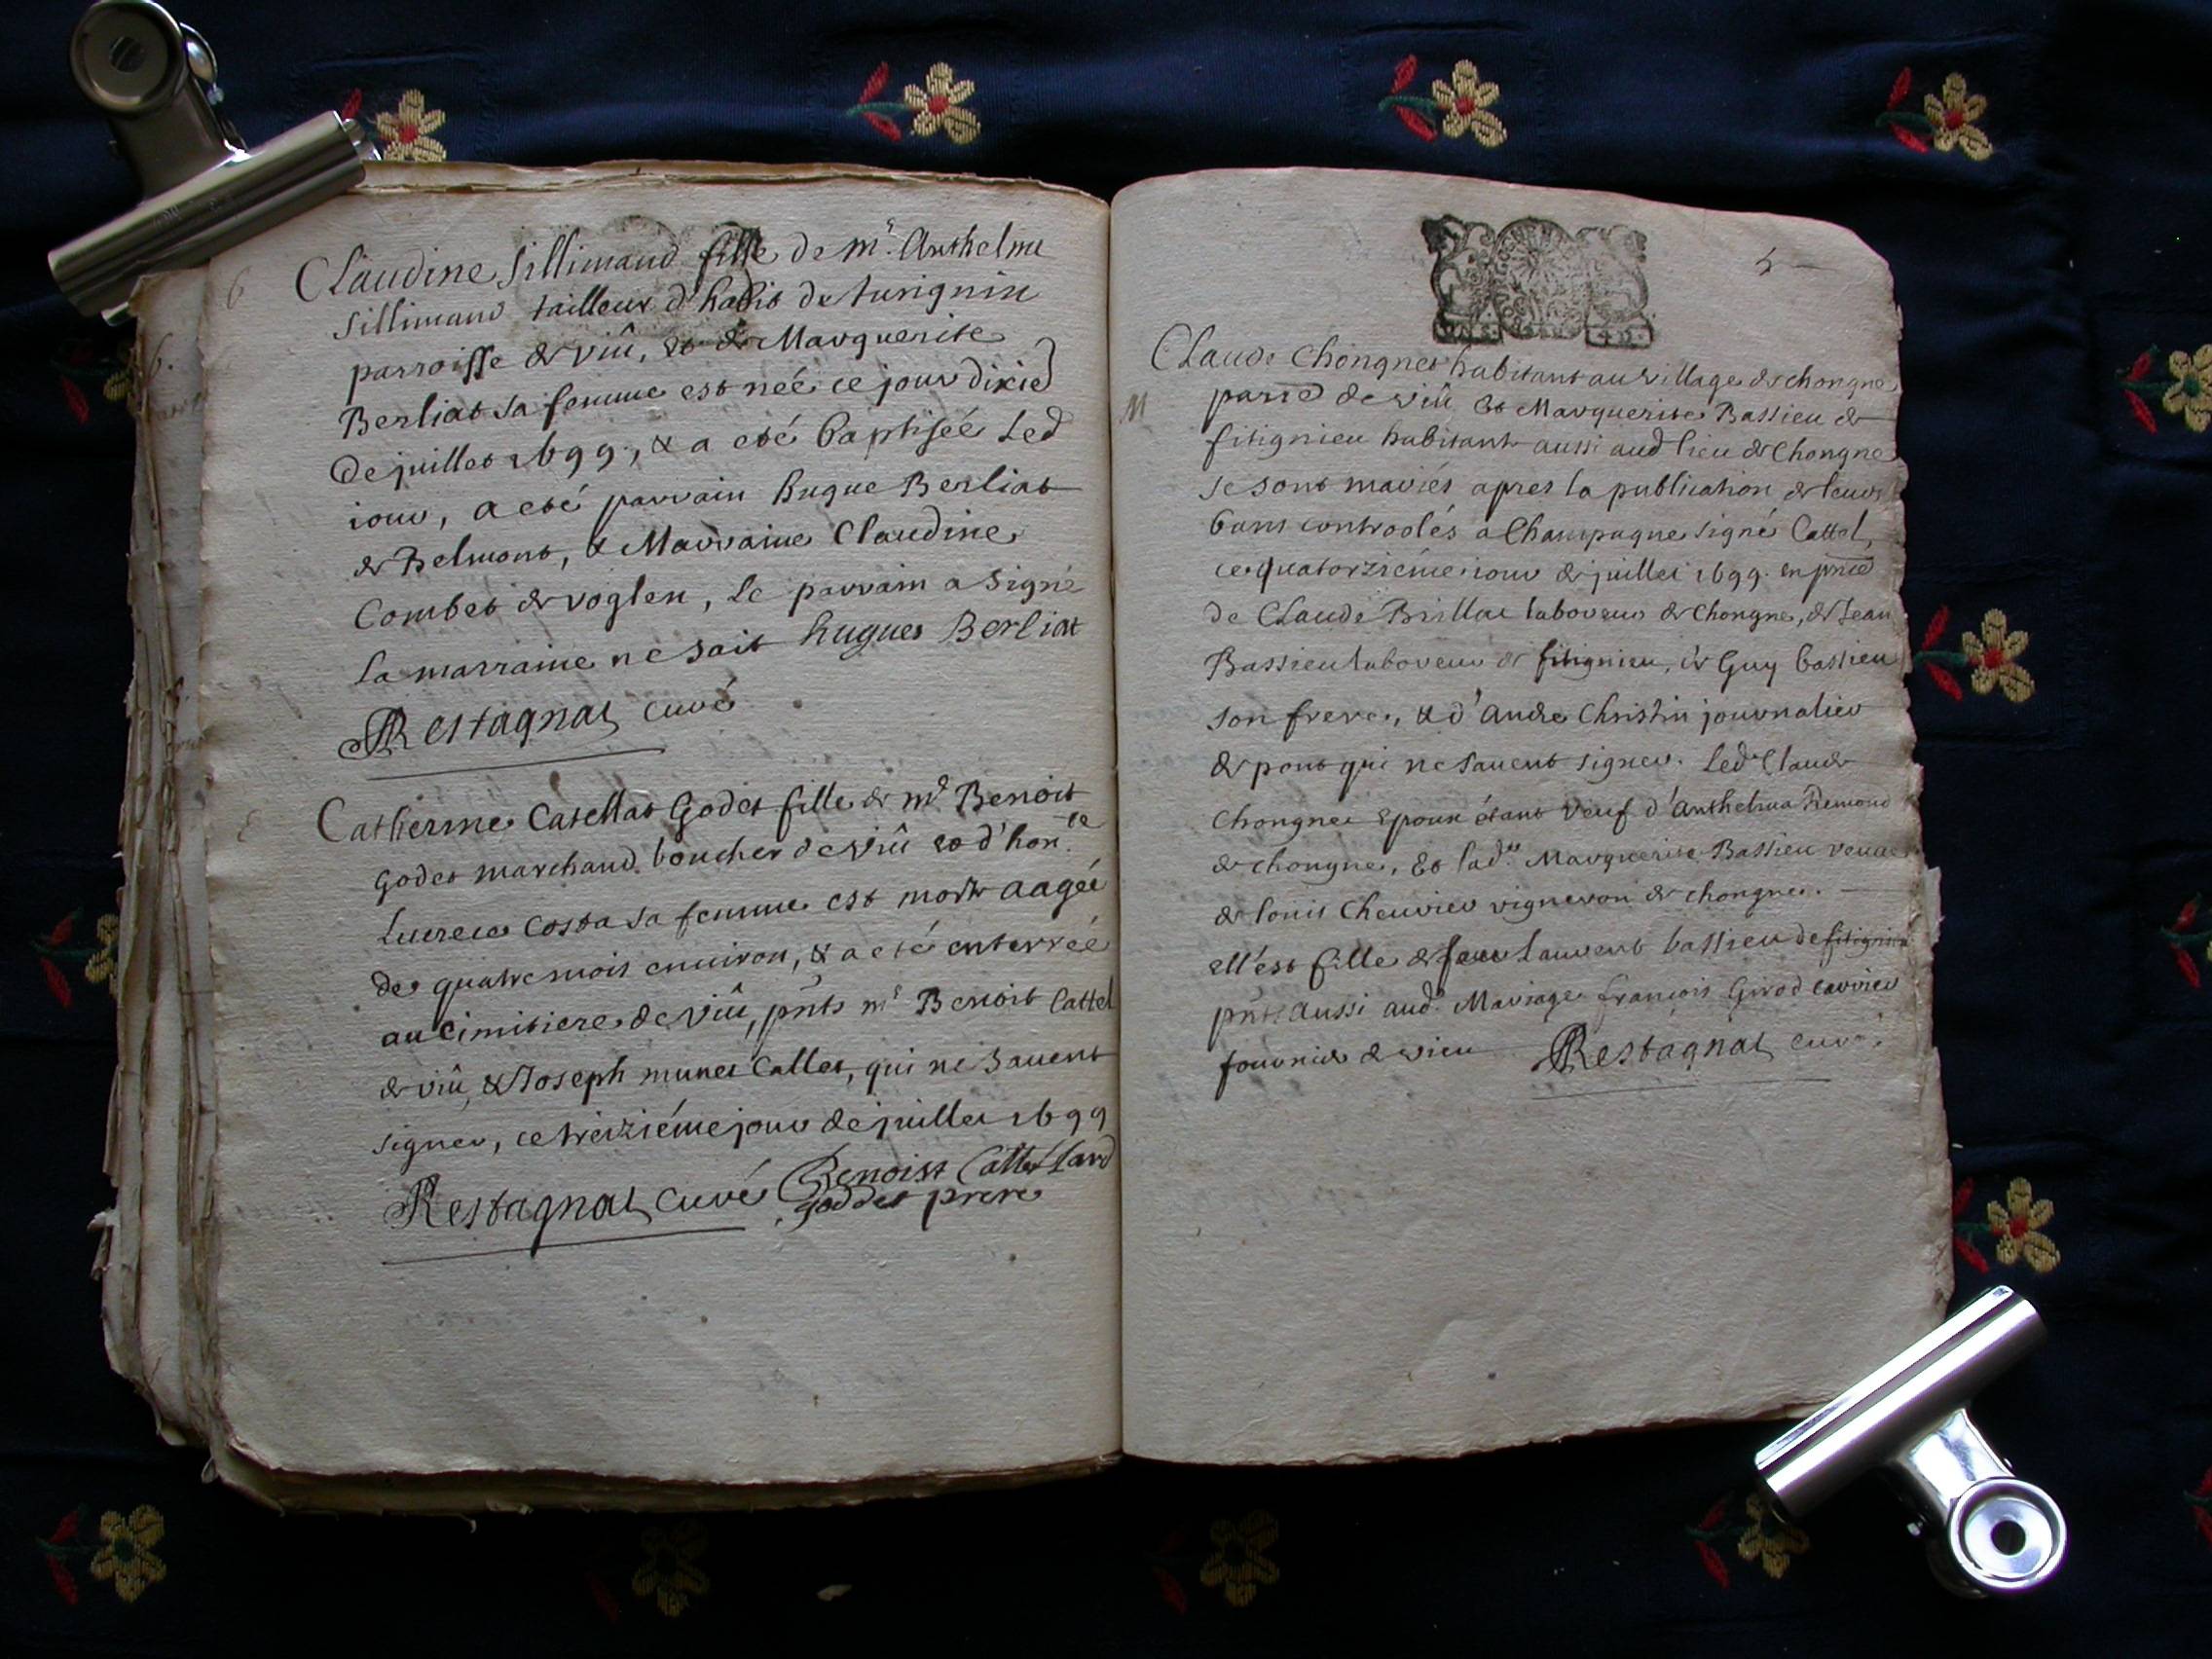 Claudine Sillimand fille de mr. Anthelme
Sillimand tailleur d'habit de turignin
parroisse de viû, et de Marguerite
Berliat sa femme est neé ce jour dixie
de juillet 1699, & a eté baptiseé led
iour, a eté parrain hugue Berliat
de Belmont, & Marraine Claudine
Combet de voglen, Le parrain a signé
la marraine ne sait hugues Berliat
Restagnat curé
Catherine Catellat Godet fille de mr Benoit
godet marchand boucher de viû et d'hon.te
Lucrece Costa sa femme est morte aageé
de quatre mois environ, & a eté enterreé
au Cimitiere de viû, pnts mr Benoit Cattel
de viû, & Joseph munet Callet, qui ne sauent
signer, ce treiziéme jour de juillet 1699
Restagnat curé Benoist
goddet
5
Claude Chongnet habitant au village de chongne
parre de viû et Marguerite Bassieu de
fitignieu habitant aussi aud lieu de Chongne
se sont mariés apres la publication de leurs
bans controolés a Champagne signé Cattel,
ce quatorziéme iour de juillet 1699. en pnce
de Claude Brillat laboureur de Chongne, de Jean
Bassieu laboureur de fitignieu, de Guy bassieu
son frere, & d'Andre Christin journalier
de pont qui ne sauent signer. Led Claude
Chongnet Epoux étant veuf d'Anthelma Remond
de chongne, et lad.te Marguerite Bassieu veuue
de louis Cheuvier vigneron de chongne.
ell'est fille de feu Laurent bassieu de fitignieu
pnt aussi aud. Mariage françois Girod
fournier de vieu Restagnat curé
6
M